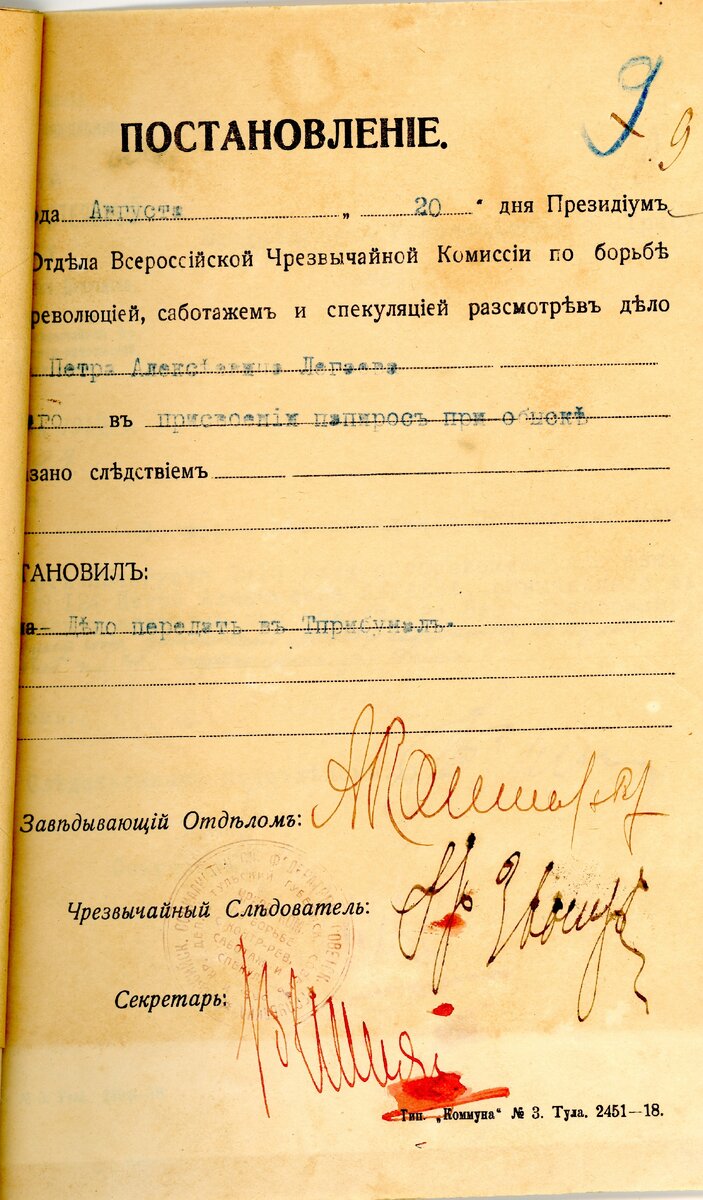 9
9
ПОСТАНОВЛЕНІЕ.
ода Августа „ 20 “ дня Президіумъ
Отдѣла Всероссійской Чрезвычайной Комиссіи по борьбѣ
революціей, саботажемъ и спекуляціей разсмотрѣвъ дѣло
Петра Алексѣевича
аго въ присвоеніи папиросъ при обыскѣ
зано слѣдствіемъ
ТАНОВИЛЪ:
на- Дѣло передать въ Трибуналъ.
Завѣдывающій Отдѣломъ:
Чрезвычайный Слѣдователь:
Секретарь:
Тип. „Коммуна“ № 3. Тула. 2451—18.